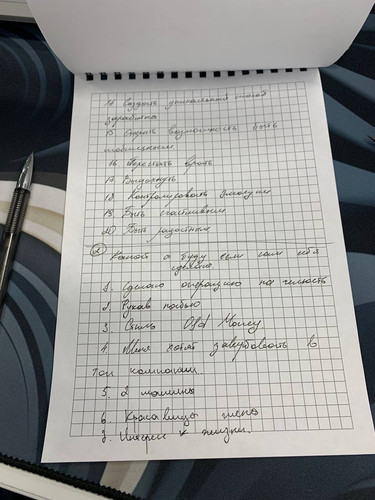 14 Создать уникальный способ
заработка
15 Открыть возможность быть
16 Перестать врать
17 Выдохнуть
18 Контролировать эмоции
19. Быть счастливым
20 Быть радостным
2 Какой я буду если сам себя
сделаю
1. Сделаю операцию на челюсть
2. Рукав набью
3. Стиль Old Money
4. Меня хотят завербовать в
топ компании.
5. 2 машины
6. Красавица жена
7. Интерес к жизни.